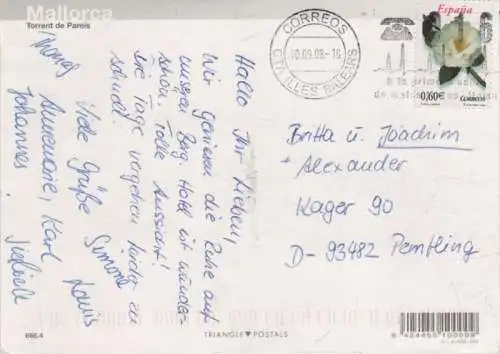 Mallorca
Torrent de Pareis
Hallo Ihr Lieben,
Wir genießen die Ruhe auf
unserem Berg. Hotel ist wunder
schön. Tolle Aussicht!
Die Tage vergehen leider zu
schnell!
Viele Grüße Simone
Annemarie, Karl
Johannes
Thomas
CORREOS
10.09.08-16
ILLES BALEARS
España
0,60€
CORREOS
Britta u. Joachim
Alexander
Kager 90
D-93482 Pemfling
666.4
TRIANGLE POSTALS
8 424450 100008